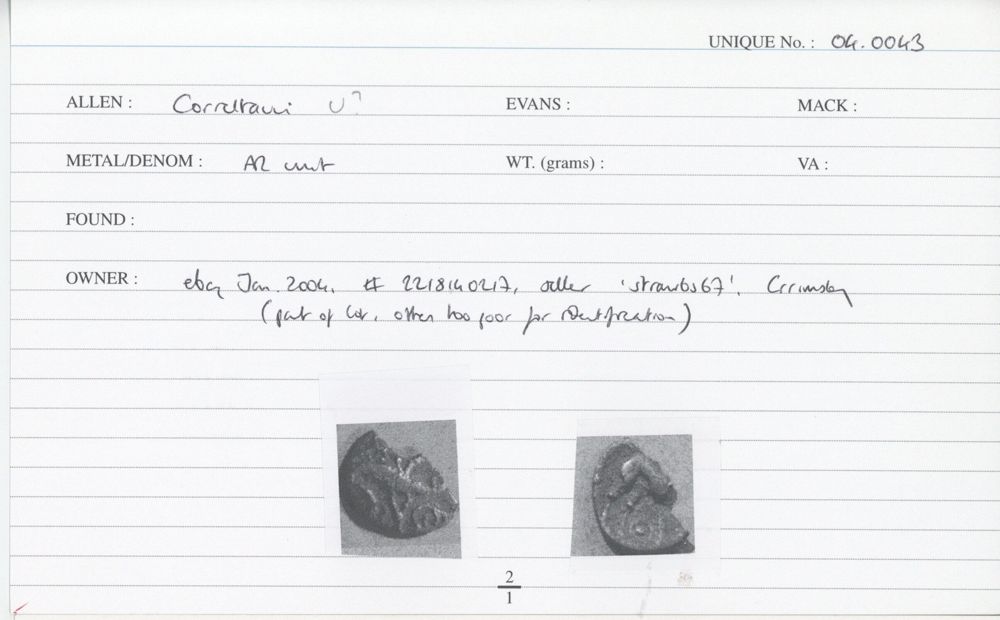 UNIQUE No. : 04.0043
ALLEN : Corieltauvi U? EVANS : MACK :
METAL/DENOM : AR unit WT. (grams) : VA :
FOUND :
OWNER : ebay Jan. 2004, # 2218140217, seller 'strawbs67'. Grimsby
(part of lot, others too poor for identification)
2
1